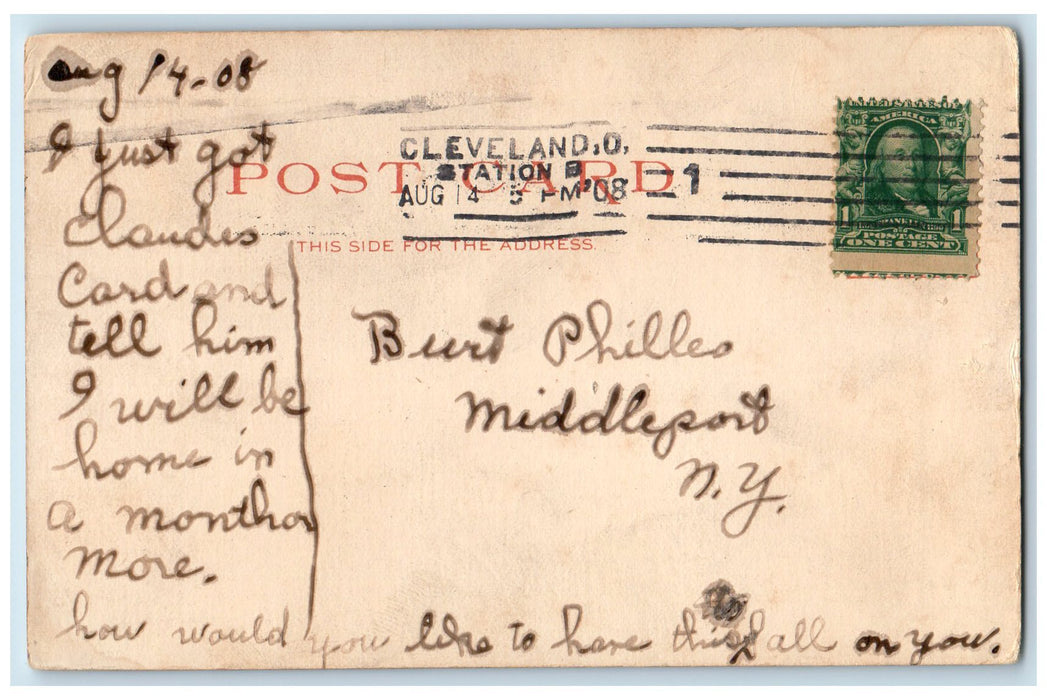 Aug 14-08
I just got
Claudes
Card and
tell him
I will be
home in
a month or
more.
how would you like to have this fall on you.
POST CARD
THIS SIDE FOR THE ADDRESS.
CLEVELAND, O.
STATION B
AUG 14 5 PM '08
1
Burt Philles
Middleport
N.Y.
AMERICA
1 FRANKLIN 1
POSTAGE
ONE CENT